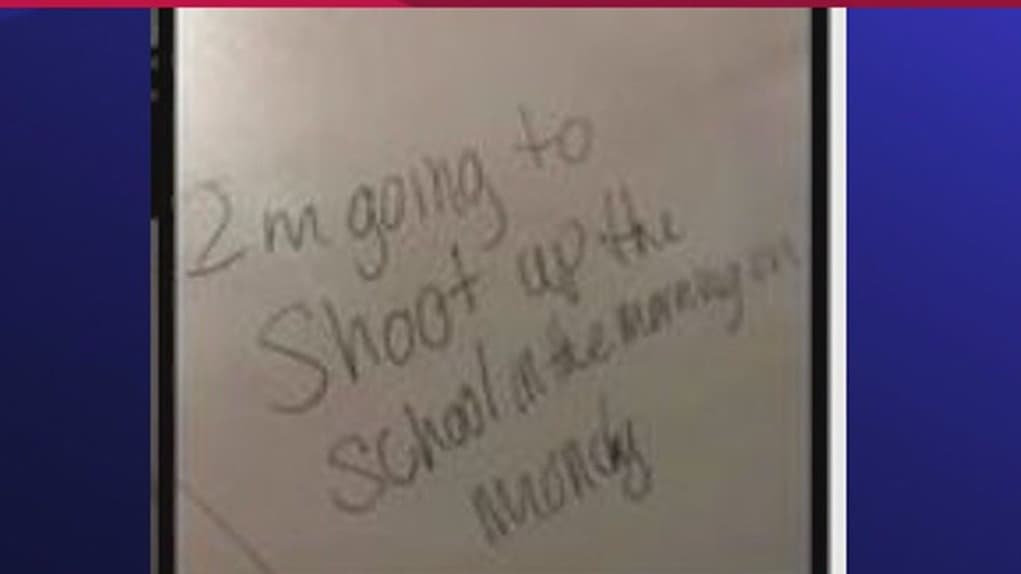 2m going to
Shoot up the
School in the morning on
mondy